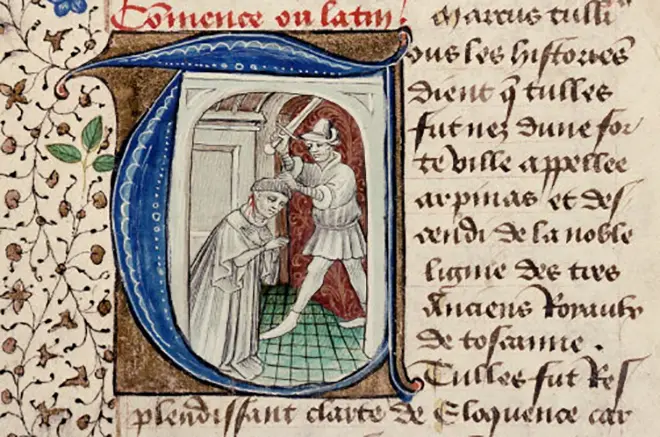 Comence ou latin.
Marcus tulli
ous les histories
dient q̄ tulles
fut nez dune for
te ville appellee
arpinas et des
cendi de la noble
lignie des tres
Anciens Royaulx
de toscanne.
Tulles fut Res
plendissant clarte de Eloquence car